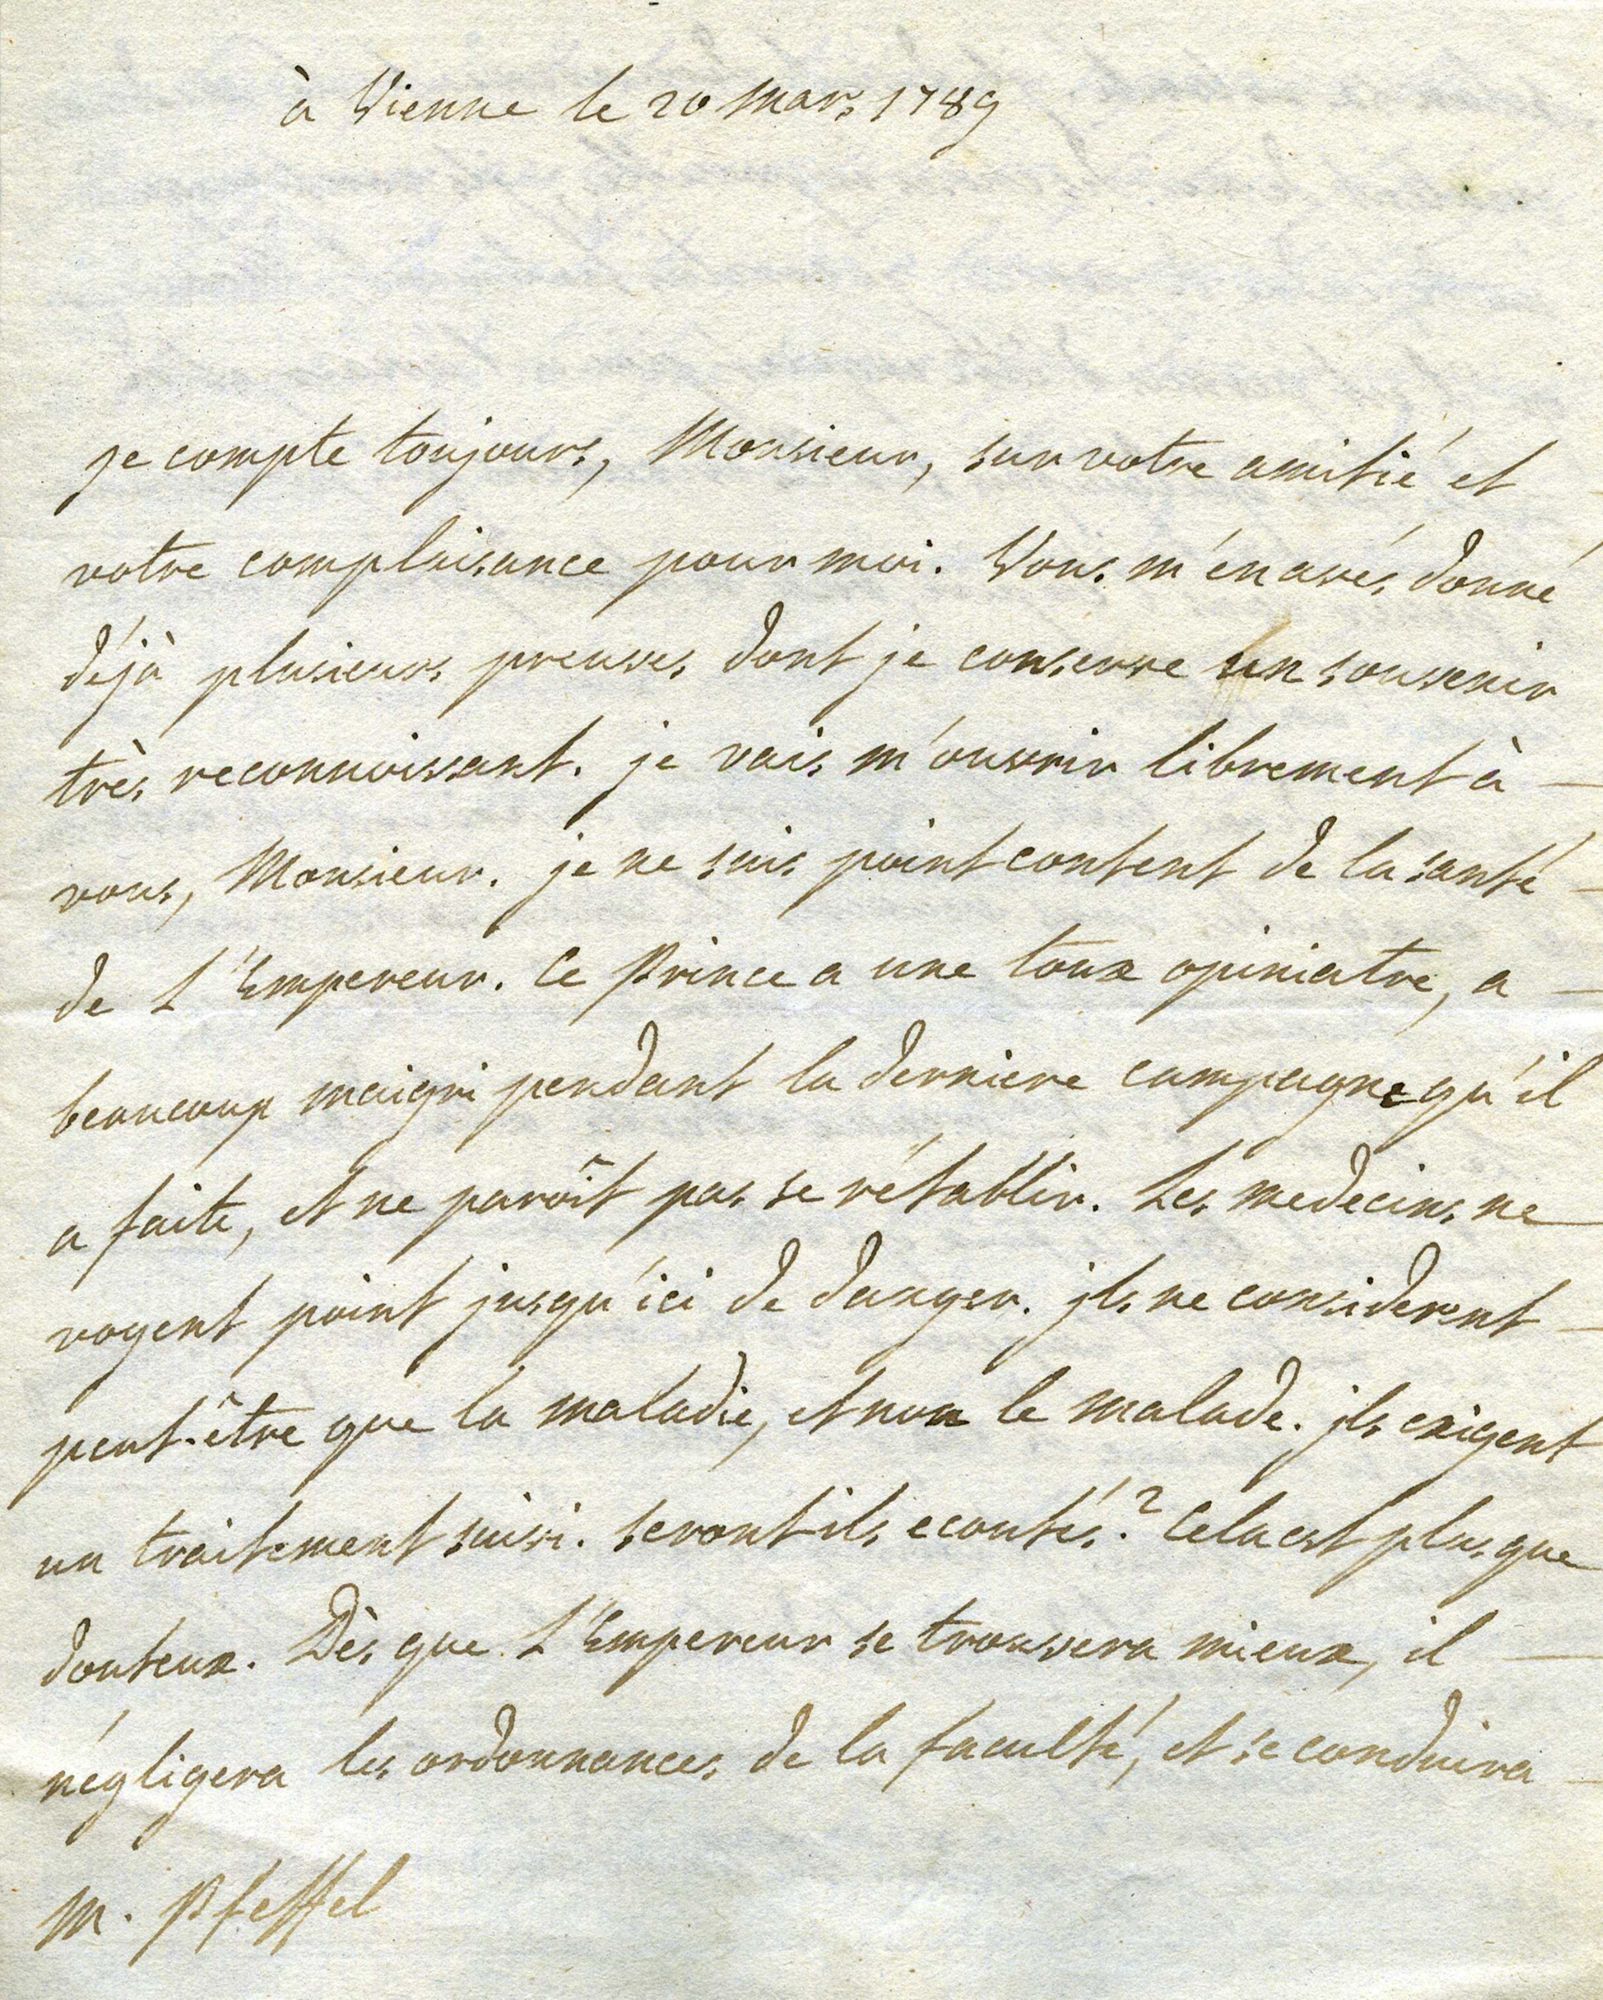 à Vienne le 20 Mars 1789
je compte toujours, Monsieur, sur votre amitié et
votre complaisance pour moi. Vous m'en avés donné
déjà plusieurs preuves dont je conserve un souvenir
très reconnoissant. je vais m'ouvrir librement à
vous, Monsieur. je ne suis point content de la santé
de L'Empereur. Ce Prince a une toux opiniatre, a
beaucoup maigri pendant la derniere campagne qu'il
a faite, et ne paroît pas se rétablir. Les medecins ne
voyent point jusqu'ici de danger. jls ne considerent
peut-être que la maladie, et non le malade. jls exigent
un traitement suivi. seront ils ecoutés? Cela est plus que
douteux. Dès que L'Empereur se trouvera mieux, il
négligera les ordonnances de la faculté, et se conduira
M. Pfeffel